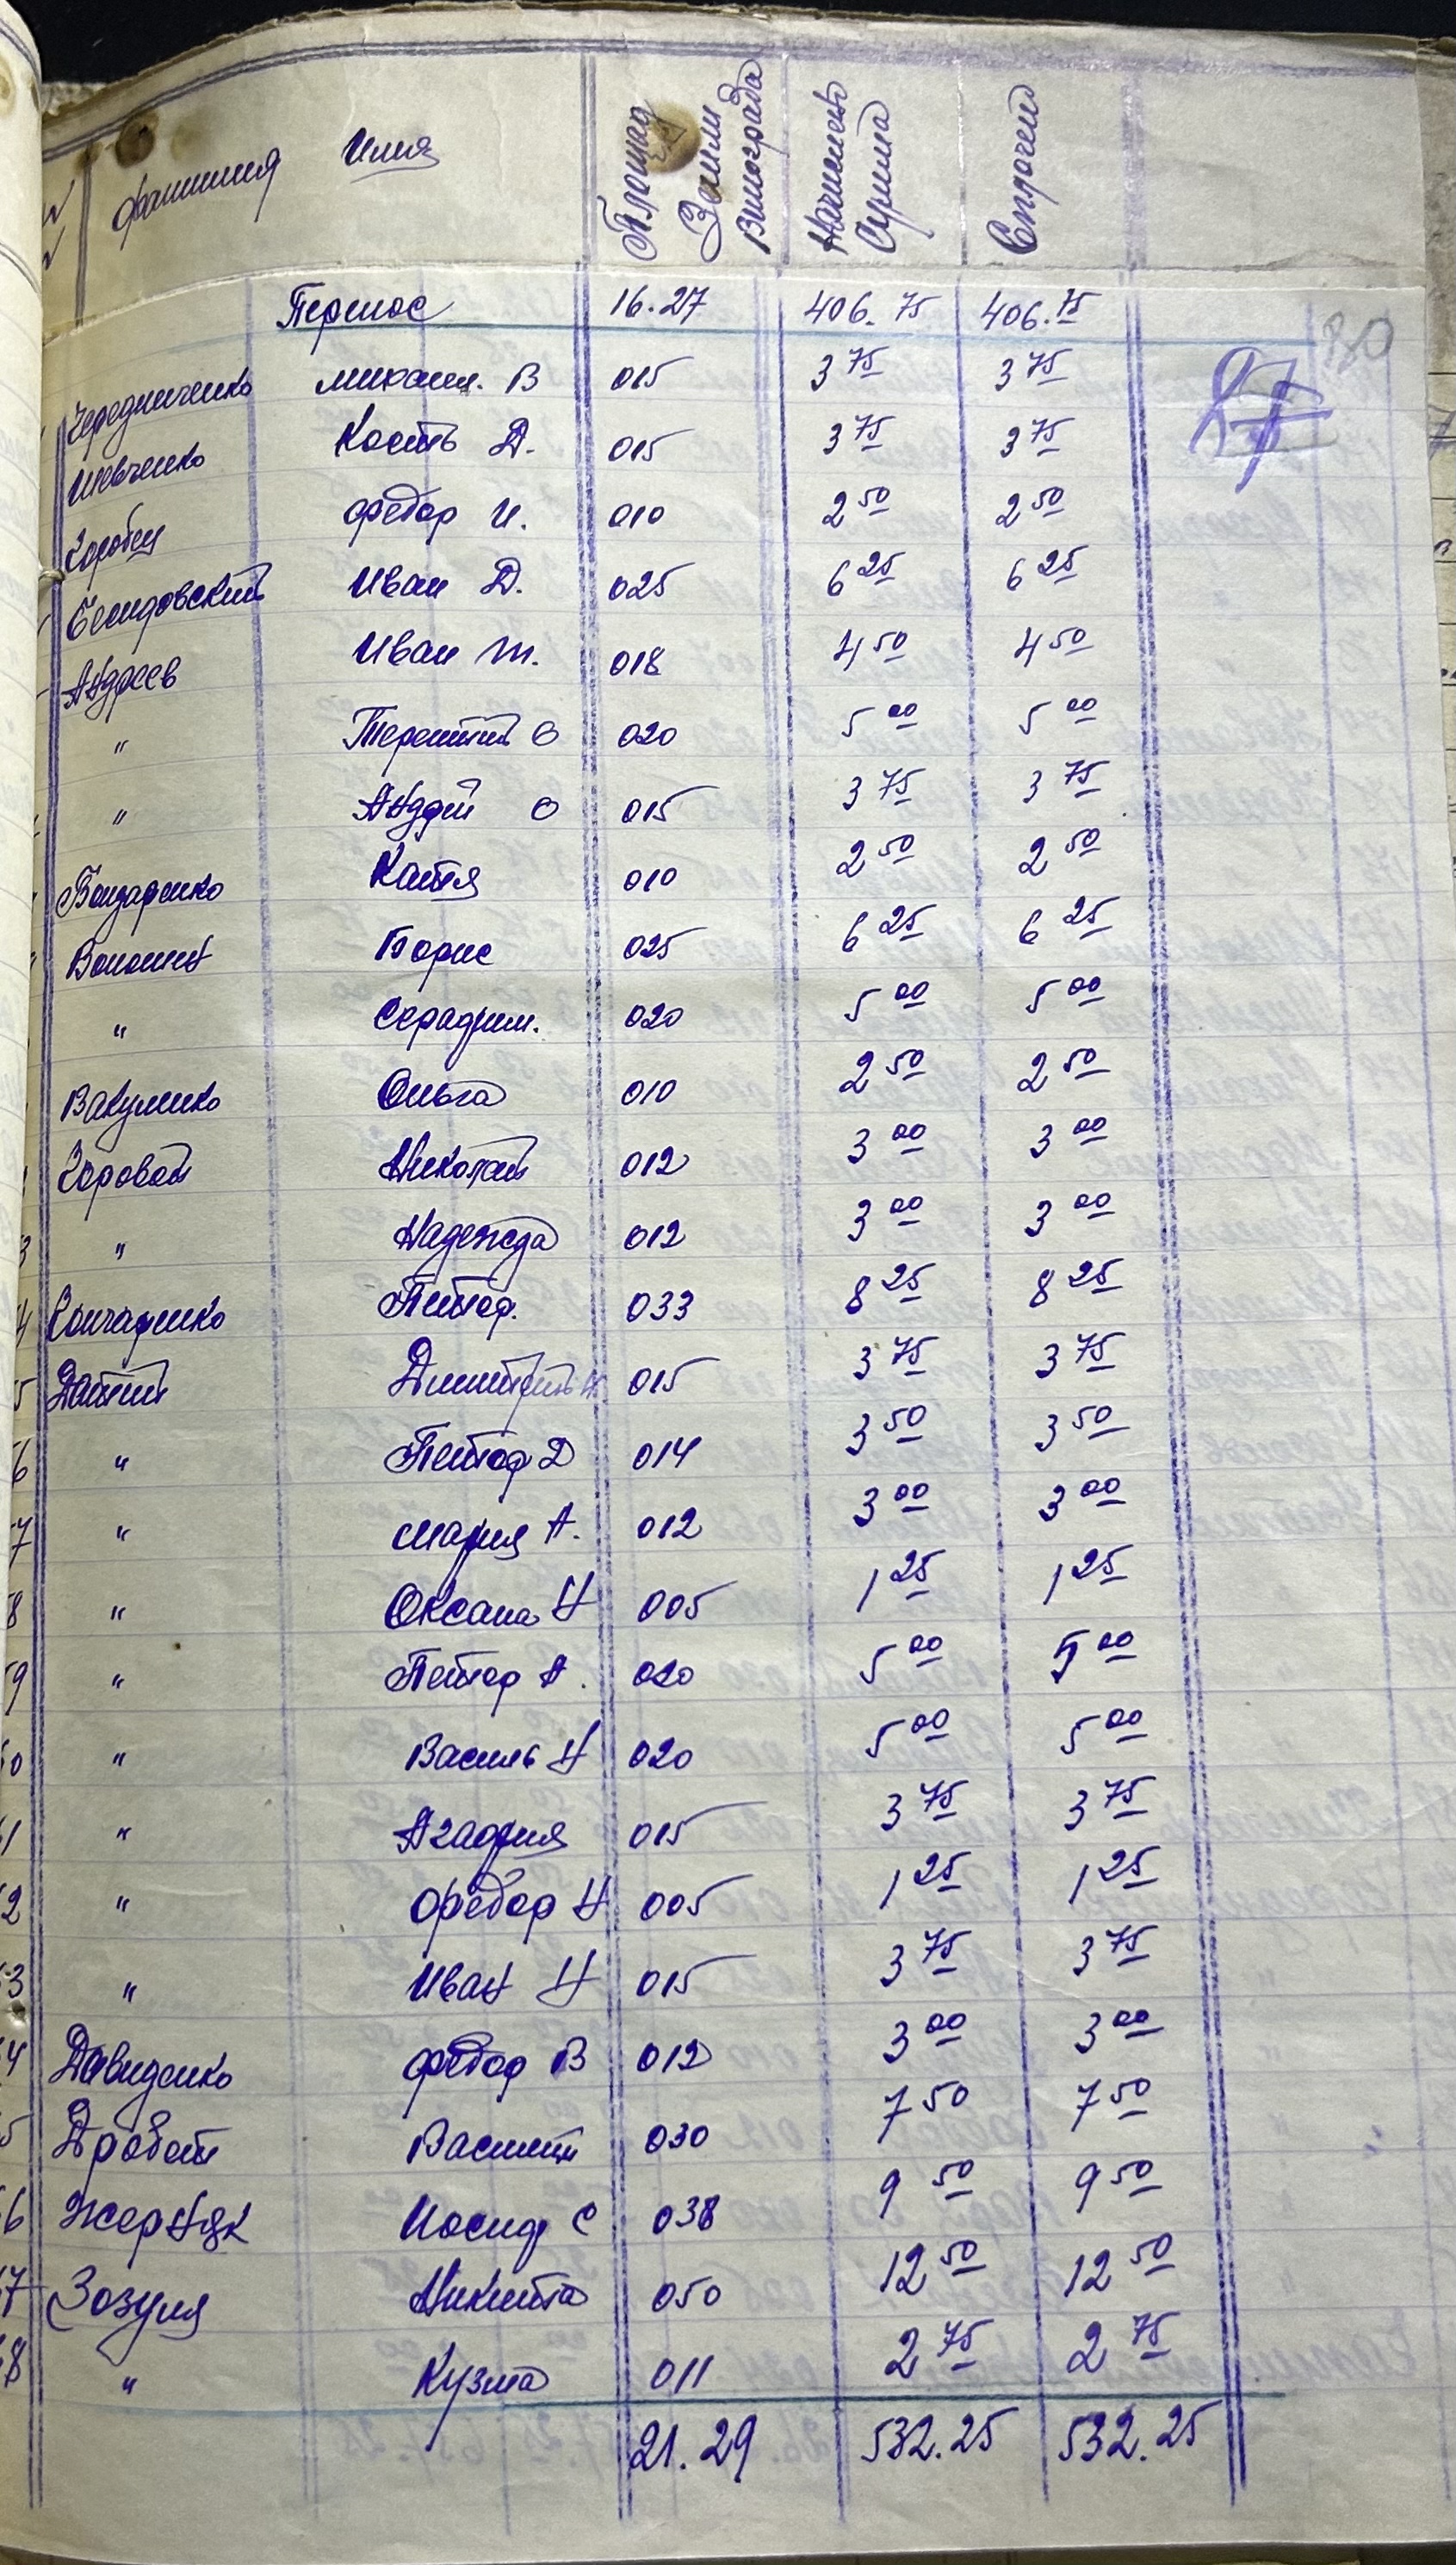 фамилия Имя Площад Земли Винограда Начислено Сумма Сплочено
Пернос 16.27 406.75 406.75
27
Чередниченко михаил. В 015 3 75 3 75
Шевченко Кость Д. 015 3 75 3 75
федор И. 010 2 50 2 50
Иван Д. 025 6 25 6 25
Андреев Иван т. 018 4 50 4 50
" Терентий О 020 5 00 5 00
" Андрей О 015 3 75 3 75
Бондаренко Катя 010 2 50 2 50
Волошин Борис 025 6 25 6 25
" Серафим. 020 5 00 5 00
Вакуленко Ольга 010 2 50 2 50
Николай 012 3 00 3 00
3 " Надежда 012 3 00 3 00
4 Гончаренко Петор. 033 8 25 8 25
5 Дмитрий 015 3 75 3 75
6 " Петор Д 014 3 50 3 50
7 " Мария А. 012 3 00 3 00
8 " Оксана Н 005 1 25 1 25
9 " Петор А. 020 5 00 5 00
0 " Василь Н 020 5 00 5 00
1 " Агафия 015 3 75 3 75
2 " Федор Н 005 1 25 1 25
3 " Иван Н 015 3 75 3 75
4 Давиденко федор В 012 3 00 3 00
5 Дробот Василий 030 7 50 7 50
6 Жерняк Иосиф С 038 9 50 9 50
7 Зозуля Никита 050 12 50 12 50
8 " Кузма 011 2 75 2 75
21.29 532.25 532.25